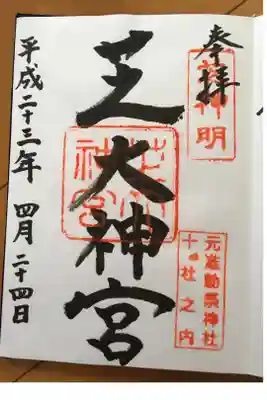 奉拝
芝神明
元准勅祭神社
十社之内
芝大神宮
平成二十三年 四月二十四日